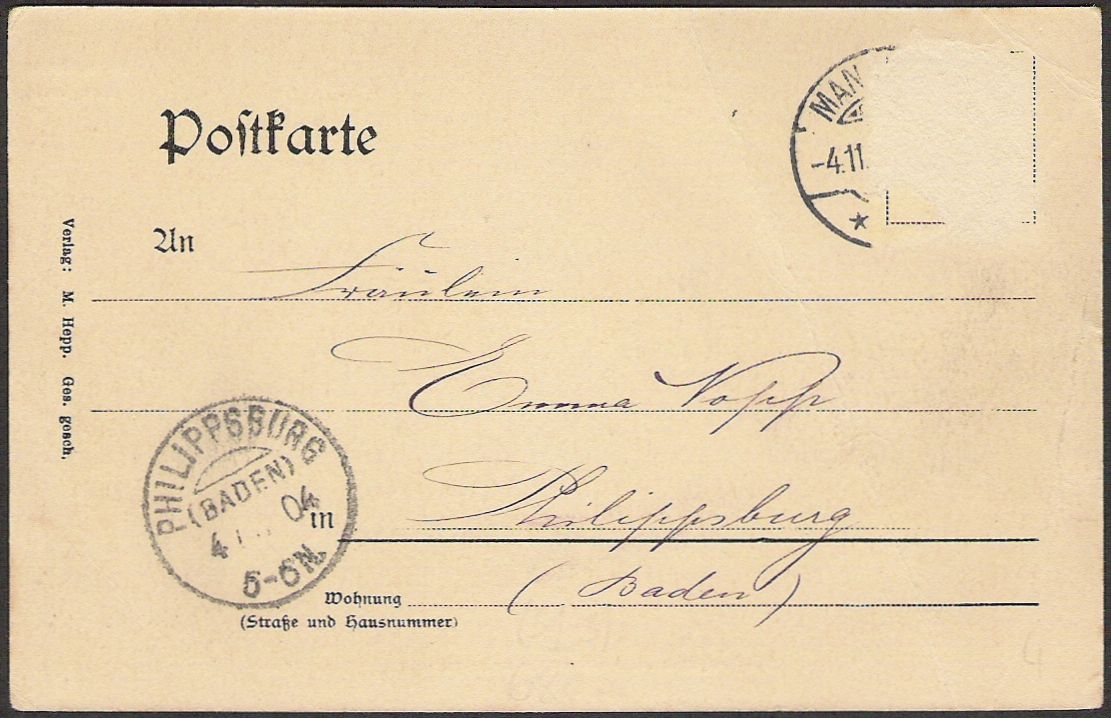 Postkarte
MAN
-4.11.
*
An
Fräulein
Emma Kopp
Philippsburg
in
(Baden)
Wohnung
(Straße und Hausnummer)
PHILIPPSBURG
(BADEN)
4 04
5-6N.
Verlag: M. Hepp. Ges. gesch.